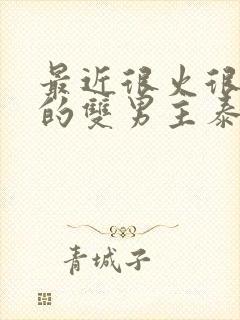 最近很火很
的雙男主泰
青城子